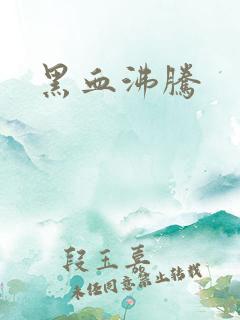 黑血沸騰
段王喜
未经同意禁止转载